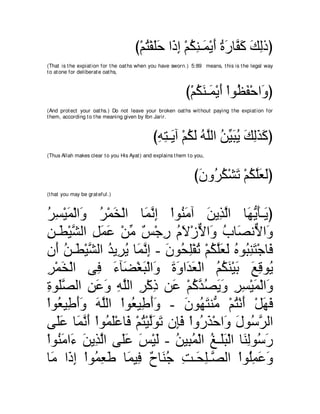 (ذَلِكَ كَفَّارَةُ أَيْمَـنِكُمْ إِذَا حَلَفْتُمْ)
(That is the expiation for the oaths when you have sworn.) 5:89 means, this is the legal way
to atone for deliberate oaths,
(وَاحْفَظُواْ أَيْمَـنَكُمْ)
(And protect your oaths.) Do not leave your broken oaths without paying the expiation for
them, according to the meaning given by Ibn Jarir.
(كَذَلِكَ يُبَيِّنُ اللَّهُ لَكُمْ آيَـتِهِ)
(Thus Allah makes clear to you His Ayat) and explains them to you,
(لَعَلَّكُمْ تَشْكُرُونَ)
(that you may be grateful.)
(يَـأَيُّهَا الَّذِينَ آمَنُواْ إِنَّمَا الْخَمْرُ وَالْمَيْسِرُ
وَالأَنصَابُ وَالأَزْلاَمُ رِجْسٌ مِّنْ عَمَلِ الشَّيْطَـنِ
فَاجْتَنِبُوهُ لَعَلَّكُمْ تُفْلِحُونَ - إِنَّمَا يُرِيدُ الشَّيْطَـنُ أَن
يُوقِعَ بَيْنَكُمُ الْعَدَاوَةَ وَالْبَغْضَآءَ فِى الْخَمْرِ
وَالْمَيْسِرِ وَيَصُدَّكُمْ عَن ذِكْرِ اللَّهِ وَعَنِ الصَّلَوةِ
فَهَلْ أَنْتُمْ مُّنتَهُونَ - وَأَطِيعُواْ اللَّهَ وَأَطِيعُواْ
الرَّسُولَ وَاحْذَرُواْ فَإِن تَوَلَّيْتُمْ فَاعْلَمُواْ أَنَّمَا عَلَى
رَسُولِنَا الْبَلَـغُ الْمُبِينُ - لَيْسَ عَلَى الَّذِينَ ءَامَنُواْ
وَعَمِلُواْ الصَّـلِحَـتِ جُنَاحٌ فِيمَا طَعِمُواْ إِذَا مَا